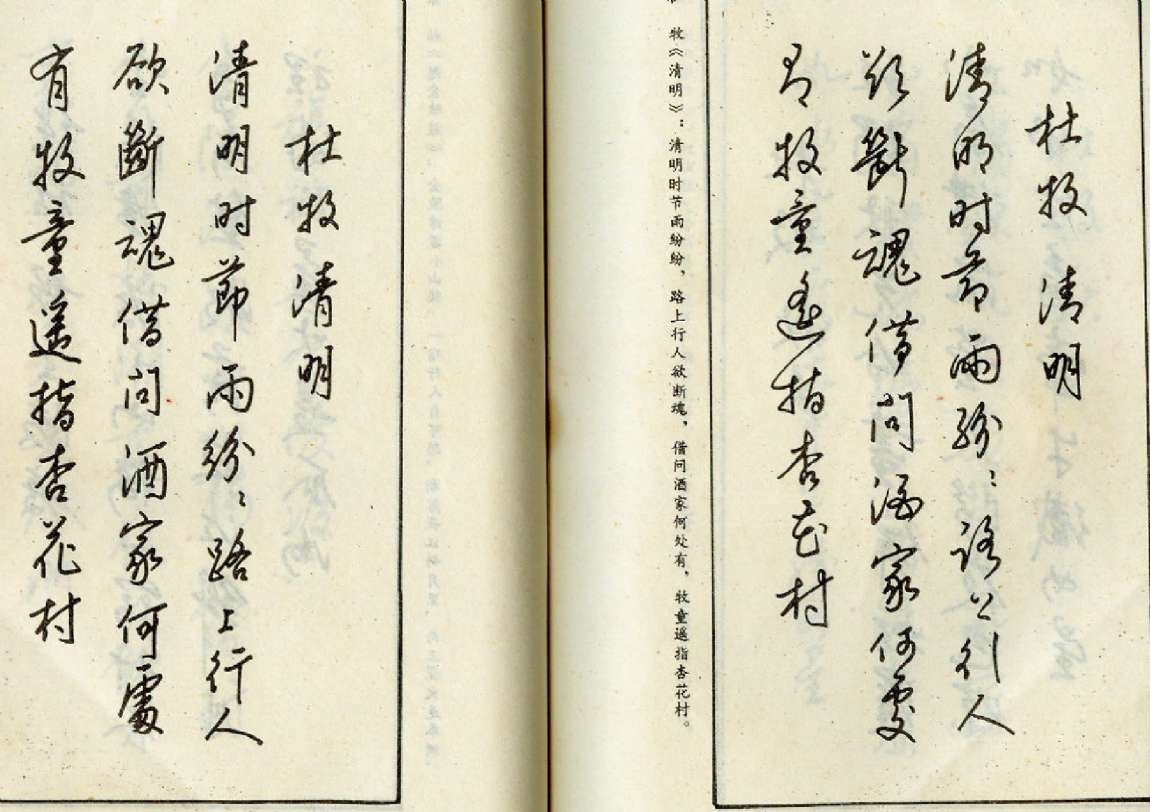 杜牧 清明
清明时节雨纷〻路上行人
欲斷魂借问酒家何處
有牧童遥指杏花村
牧《清明》：清明时节雨纷纷，路上行人欲断魂，借问酒家何处有，牧童遥指杏花村。
杜牧清明
清明时節雨纷〻路上行人
欲斷魂借问酒家何處
有牧童遥指杏花村